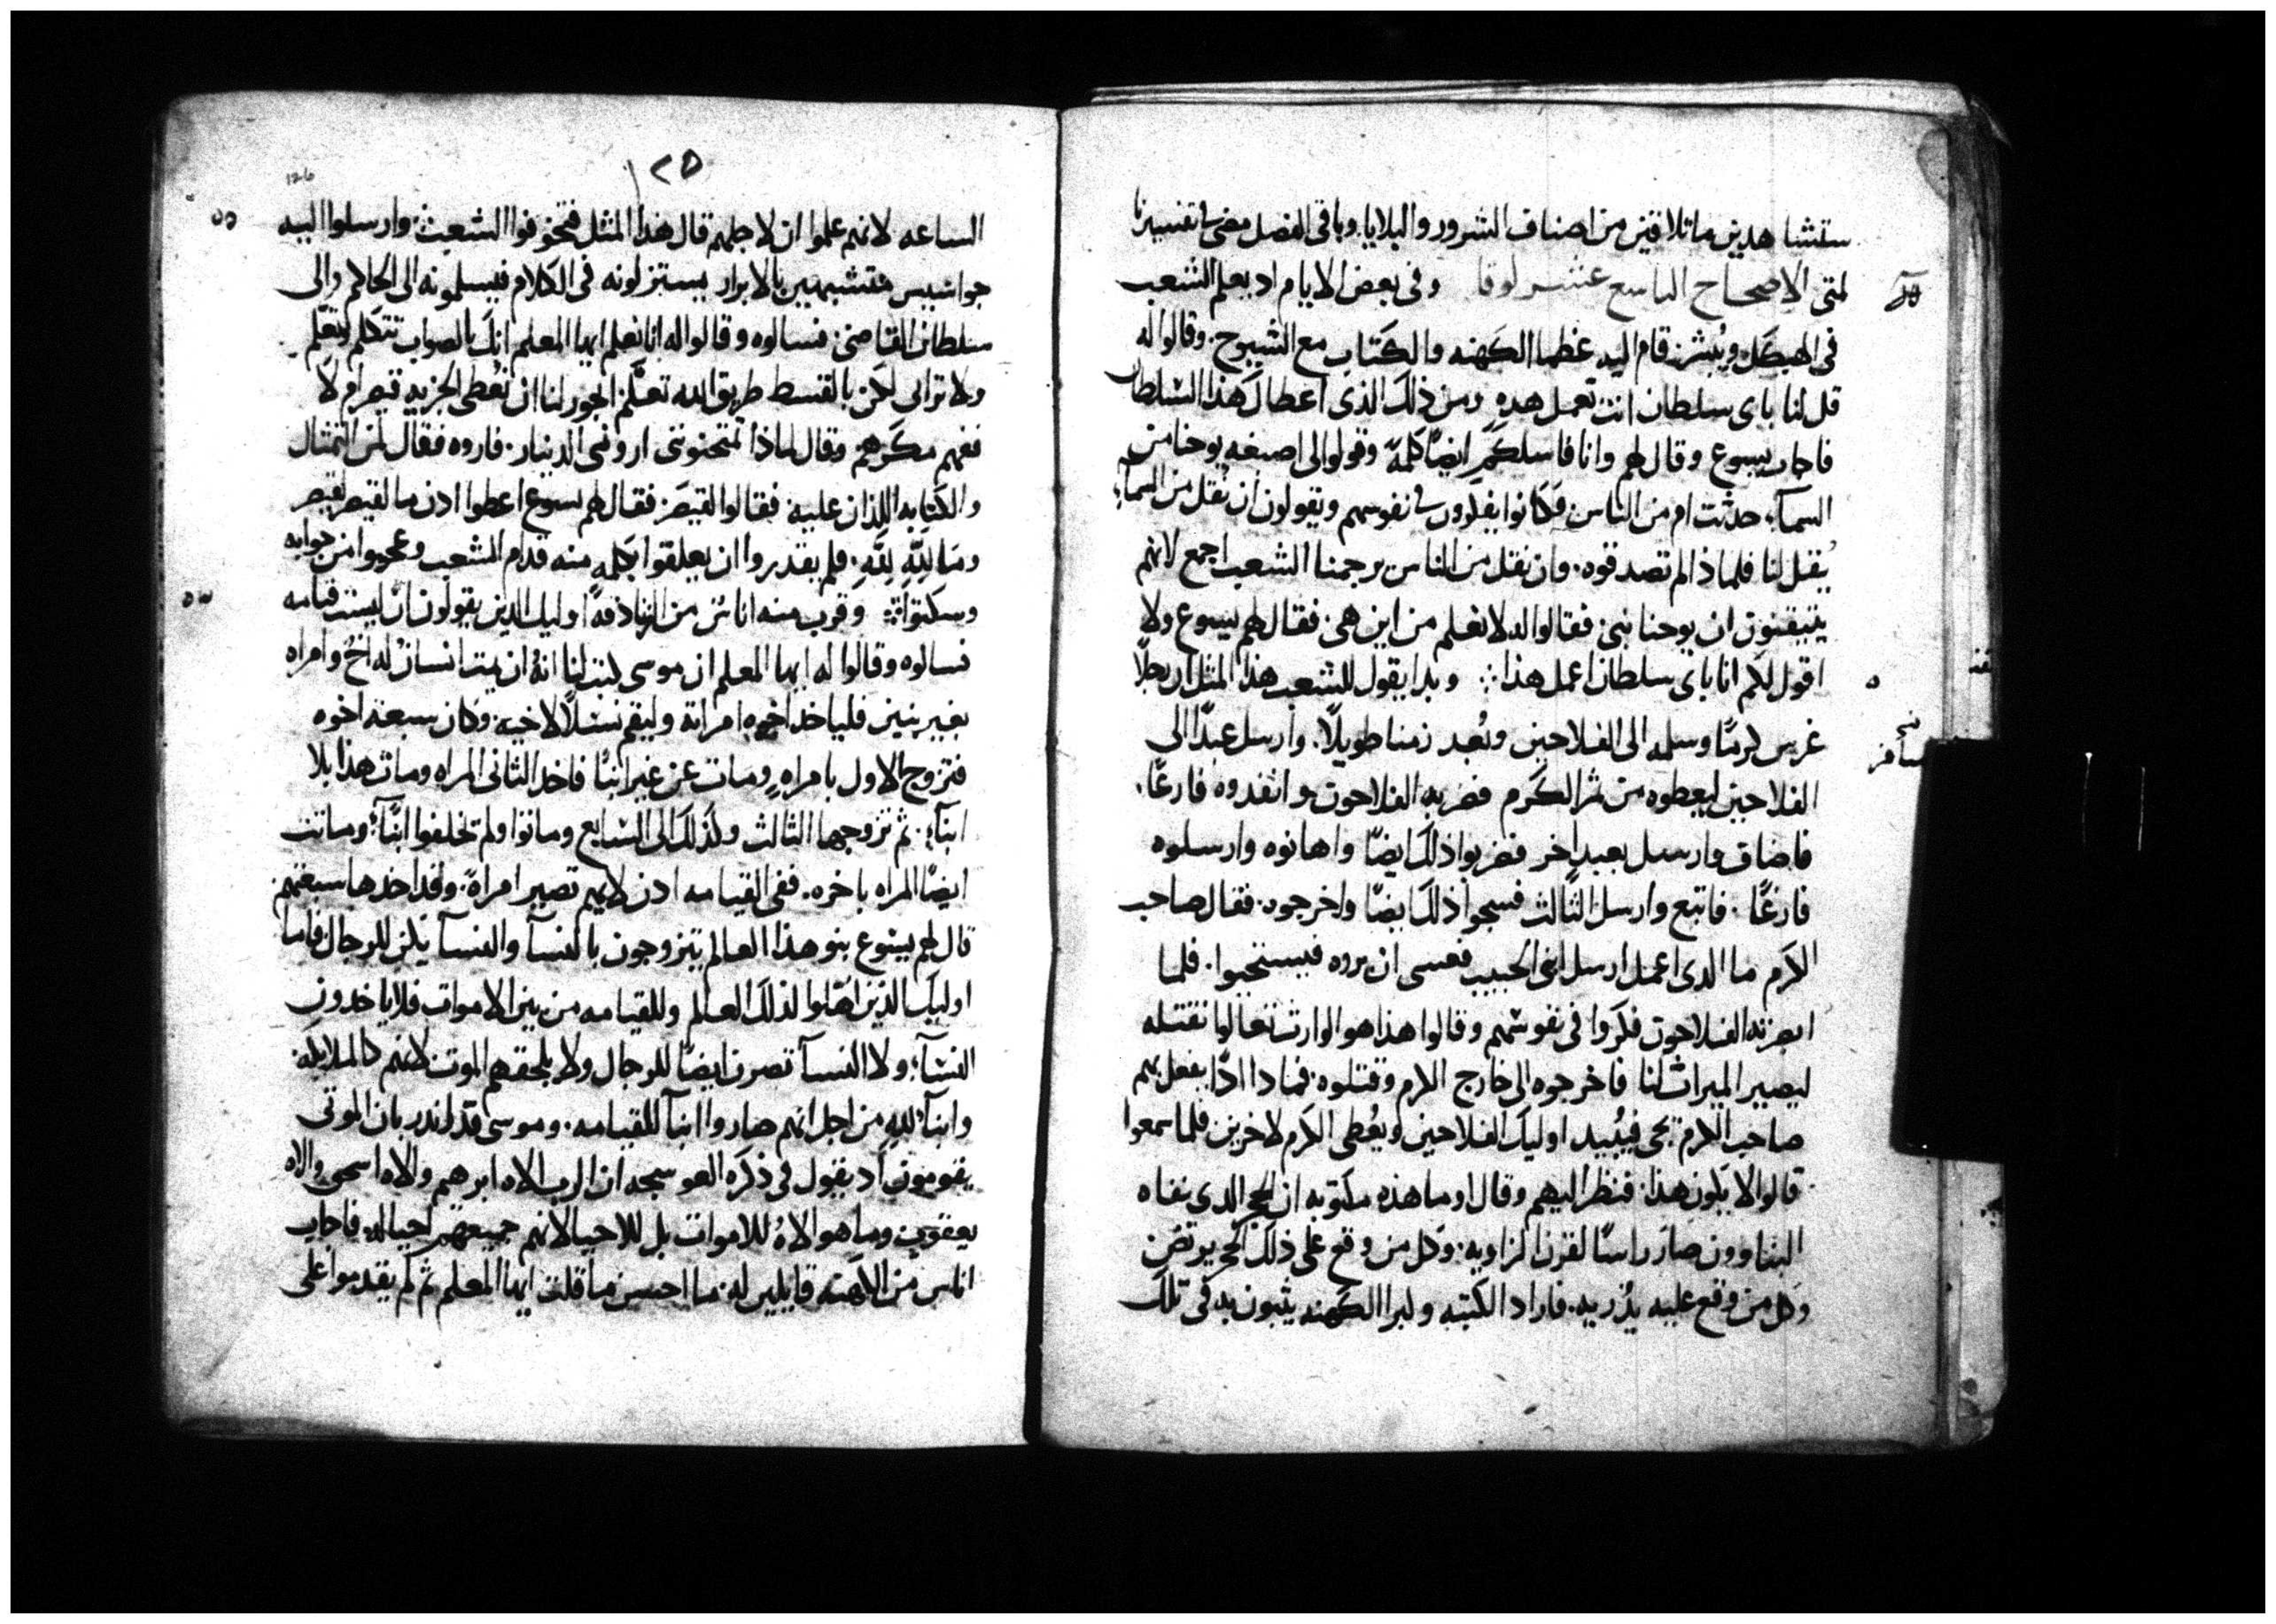 ستشاهدين ما تلاقين من اصناف الشرور والبلايا وباقى الفصل مضى فى تفسيرنا
لمتى الاصحاح التاسع عشر لوقا وفى بعض الايام اد يعلم الشعب
فى الهيكل ويبشر قام اليه عظما الكهنه والكتاب مع الشيوخ. وقالوا له
قل لنا باى سلطان انت تعمل هده ومن ذلك الذى اعطال هذا السلطان
فاجاب يسوع وقال لهم وانا فاسلكم ايضًا كلمة وقولوا لى اصبغه يوحنا من
السمآء حدثت ام من الناس فكانوا يفكرون فى نفوسهم ويقولون ان نقل من السمآء
يُقل لنا فلماذا لم تصدقوه. وان نقل من الناس يرجمنا الشعب اجمع لانهم
يتيقنون ان يوحنا نبى فقالوا له لا نعلم من اين هى. فقال لهم يسوع ولا
اقول لكم انا باى سلطان اعمل هذا وبدا يقول للشعب هذا المثل ان رجلًا
غرس كرمًا وسلمه الى الفلاحين وبُعد زمنا طويلًا. وارسل عبدًا الى
الفلاحين ليعطوه من ثمر الكرم فضربه الفلاحون وانفدوه فارغًا.
فاضاف وارسل بعبدٍ اخر فضربوا ذلك ايضًا واهانوه وارسلوه
فارغًا. فاتبع وارسل الثالث فسجوا ذلك ايضًا واخرجوه. فقال صاحب
الكرم ما الدى اعمل ارسل ابنى الحبيب فعسى ان يروه فيستحيوا. فلما
ابصرته الفلاحون فكروا فى نفوسهم وقالوا هذا هو الوارث تعالوا نقتله
ليصير الميراث لنا فاخرجوه الى خارج الكرم وقتلوه. فمادا ادًا يفعل بهم
صاحب الكرم يجى فيُبيد اوليك الفلاحين ويُعطى الكرم لاخرين فلما سمعوا
قالوا لا يكون هذا. فنظر اليهم وقال وما هذه مكتوبه ان الحجر الدى نفاه
البناوون صار راسًا لقرن الزاويه. وكل من وقع على ذلك الحجر يرتض
وكل من وقع عليه يُذريه. فاراد الكتبه وكبرا الكهنه يثبون به فى تلك
نسخه
سافر
١٢٥
126
الساعه لانهم علموا ان لاجلهم قال هذا المثل فتخوفوا الشعب وارسلوا اليه
جواسيس متشبهين بالابرار يستنزلونه فى الكلام فيسلمونه الى الحاكم والى
سلطان القاضى. فسالوه وقالوا له انا نعلم ايها المعلم انك بالصواب تتكلم وتعلم
ولا ترائى لكن بالقسط طريق الله تعلّم ايجوز لنا ان نُعطى الجزيه قيصر ام لا
ففهم مكرهم وقال لماذا تمتحنوننى ارونى الدينار. فاروه فقال لمن التمثال
والكتابه اللذان عليه. فقالوا لقيصر. فقال لهم يسوع اعطوا ادن ما لقيصر لقيصر
وما لله لله. فلم يقدروا ان يعلقوا بكلمه منه قدام الشعب وعجبوا من جوابه
وسكتوا وقرب منه اناسٌ من الزنادقة اوليك الدين يقولون ان ليست قيامه
فسالوه وقالوا له ايها المعلم ان موسى كتب لنا انهُ ان يمت انسانٌ له اخٌ وامراه
بغير بنين فلياخد اخوه امراته وليقم نسلًا لاخيه. وكان سبعة اخوه
فتزوج الاول بامراه ومات عن غير ابنآ فاخد الثانى المراه ومات هذا بلا
ابنآء. ثم تزوجها الثالث وكذلك الى السابع وماتوا ولم يخلفوا ابنًآء وماتت
ايضًا المراه باخره. ففى القيامه ادن لايهم تصير امراةً. وقد اخدها سبعتهم
قال لهم يسوع بنو هذا العالم يتزوجون بالنسآ والنسآ يكن للرجال فاما
اوليك الذين اهّلوا لذلك العالم وللقيامه من بين الاموات فلا ياخدون
النسآء ولا النسآ تصرن ايضًا للرجال ولا يلحقهم الموت لانهم كالملايكه
وابنآء لله من اجل انهم صاروا ابنآ للقيامه. وموسى قد اندر بان الموتى
يقومون اد يقول فى ذكره العوسجه ان الرب الاه ابرهم والاه اسحق والاه
يعقوب وما هو الاهٌ للاموات بل للاحيا لانهم جميعهم احيا له فاجاب
اناس من الكهنه قايلين له ما احسن ما قلت ايها المعلم ثم لم يقدموا على